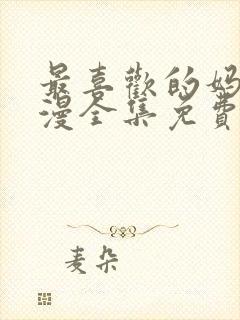 最喜歡的妈
漫全集免費
麦朵